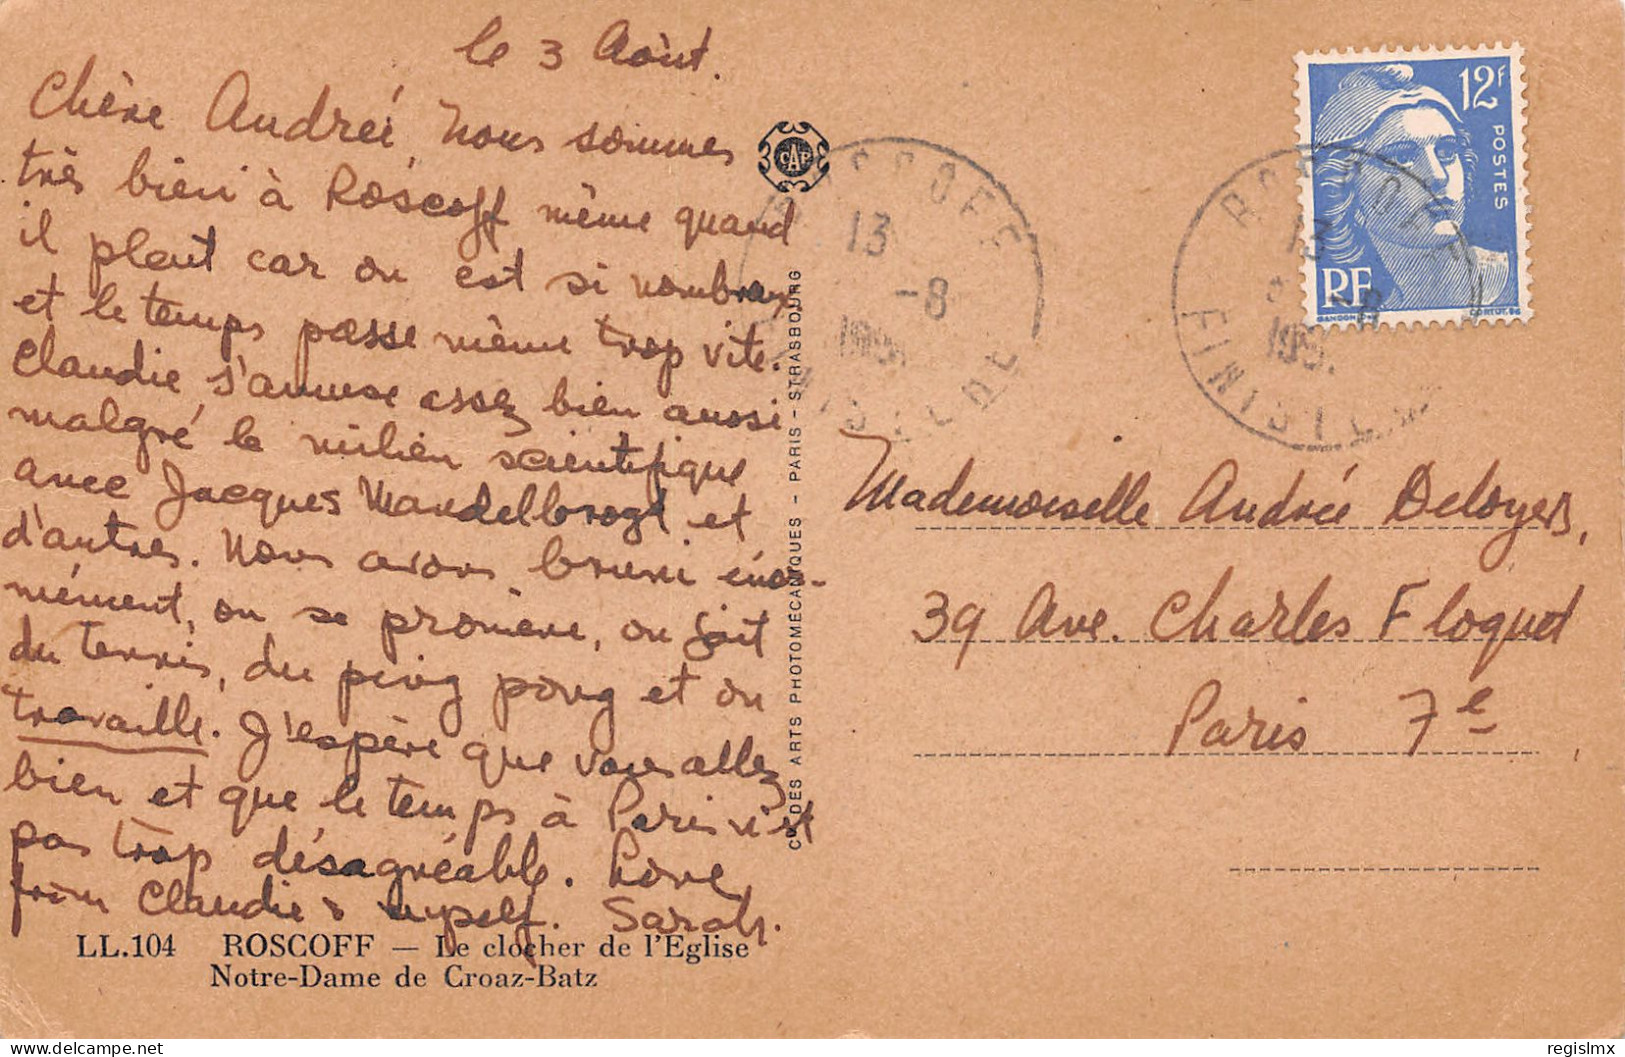 le 3 Août.
Chère Andrée, nous sommes
très bien à Roscoff même quand
il pleut car on est si nombreux
et le temps passe même trop vite.
Claudie s'amuse assez bien aussi
malgré le milieu scientifique
avec Jacques Mandelbrogt et
d'autres. Nous avons bruni énor-
mément, on se promène, on fait
du tennis, du ping pong et on
travaille. J'espère que vous allez
bien et que le temps à Paris n'est
pas trop désagréable. Love,
from Claudie & myself. Sarah.
LL.104 ROSCOFF — Le clocher de l'Eglise
Notre-Dame de Croaz-Batz
CAP
CIE DES ARTS PHOTOMÉCANIQUES - PARIS - STRASBOURG
ROSCOFF
13
-8
FINISTERE
ROSCOFF
13
-8
FINISTERE
12F
POSTES
RF
GANDON
CORTOT
Mademoiselle Andrée Deloyers,
39 Ave. Charles Floquet
Paris 7e
delcampe.net
regislmx